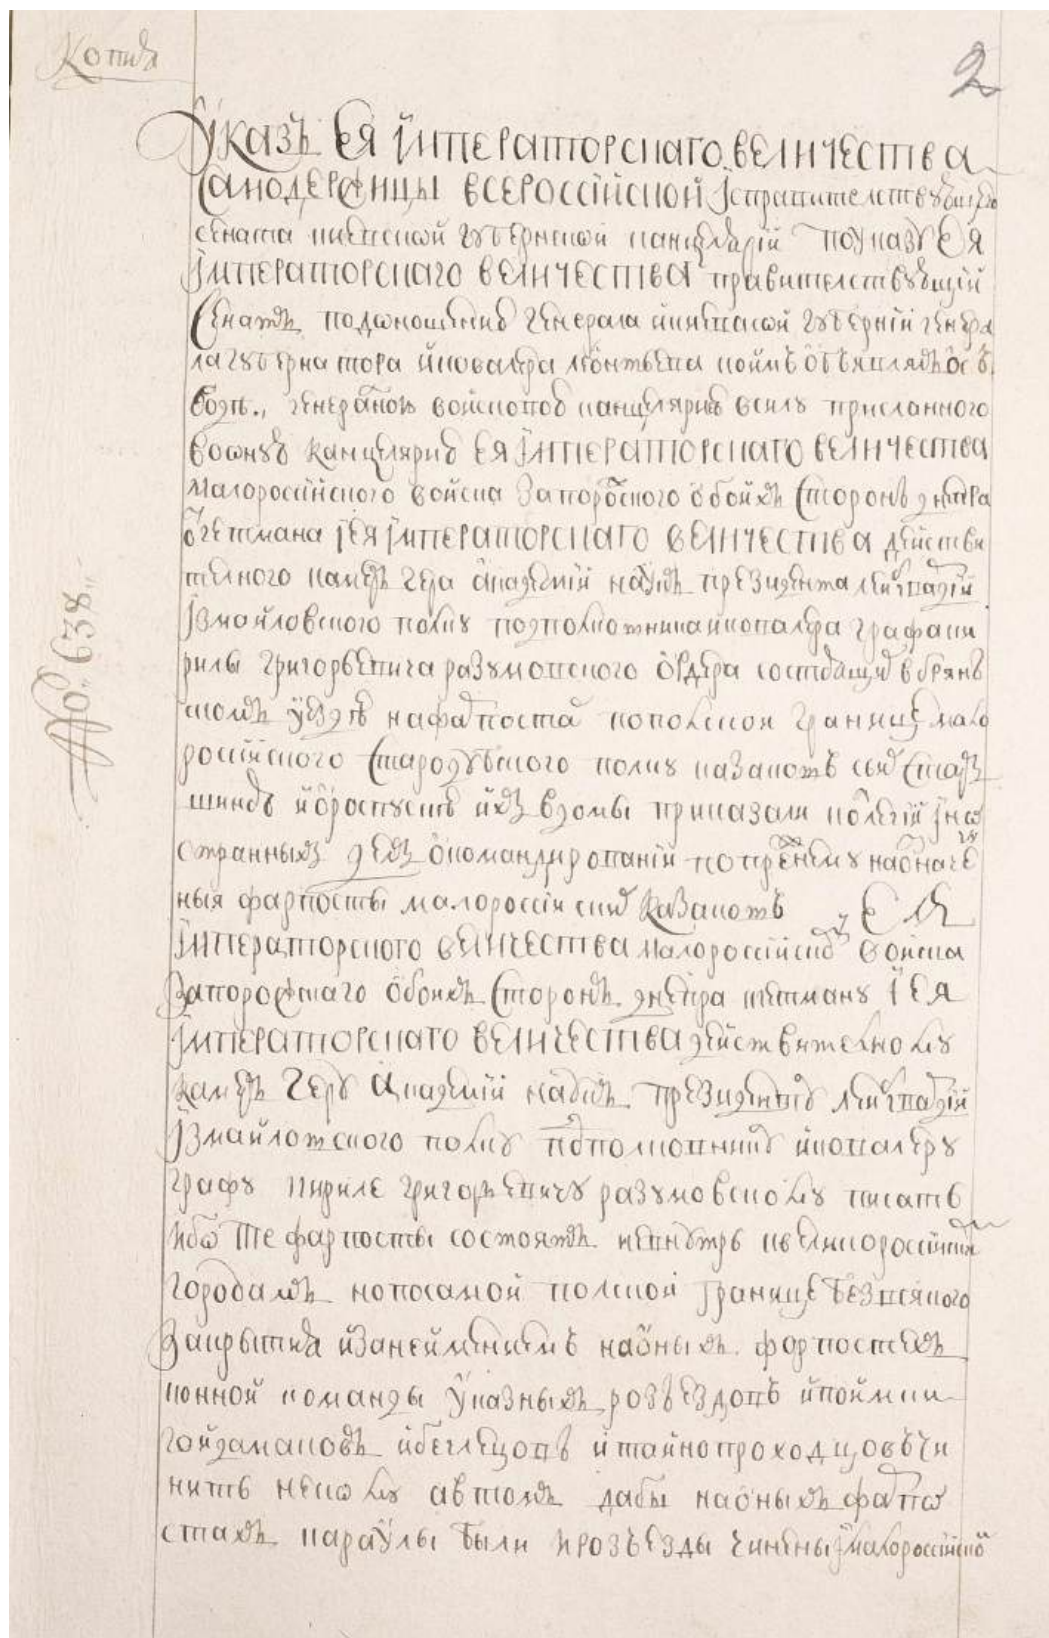 Копия
2
Указъ Ея Імператорскаго величества
Самодержицы всероссійской Ісправителствующаго
сената киевской губернской канцелярій поуказу Ея
Імператорского величества правителствующій
Сенатъ подоношению генерала икиевской губерній генера
лагубернатора иковалера леонтьева коимъ объявляя
генералной войсковой канцелярию всилу присланного
воную канцелярию Ея Імператорскаго величества
Малороссійского войска Запорозского обойхъ Сторонъ днепра
гетмана іея Імператорскаго величества действи
телного камеръ гера академій наукъ президента лейбгвардій
Ізмайловского полку подполковникаиковалера графаки
рилы григорьевича разумовского ордера состоящие вбрян
скомъ уезде нафарпостах пополской границе мало
россійского Стародубского полку казаковъ сых Старъ
шиною и ороспуске ихъ вдомы приказали колегій іно
странныхъ делъ окомандированій попрежнему наозначе
ныя фарпосты малороссійских Казаковъ Ея
Імператорского величества Малороссійских войска
Запорожскаго обоихъ Сторонъ днепра гетману іея
Імператорскаго величества действителному
камеръ геру Академій наукъ президенту лейбгвардій
Ізмайловского полку подполковнику иковалеру
графу кириле григорьевичу разумовскому писать
ибо те фарпосты состоятъ невнутрь квеликороссійским
городамъ нопосамой полской границе безвсякого
Закрытия изанейменіемъ наоныхъ форпостехъ
конной команды указныхъ розъездовъ ипоимки
гойдамаковъ ибеглецовъ итайнопроходцовъ чи
нить некому автомъ дабы наоныхъ фарпо
стахъ караулы были ирозъезды чинены малороссійско
№ 638